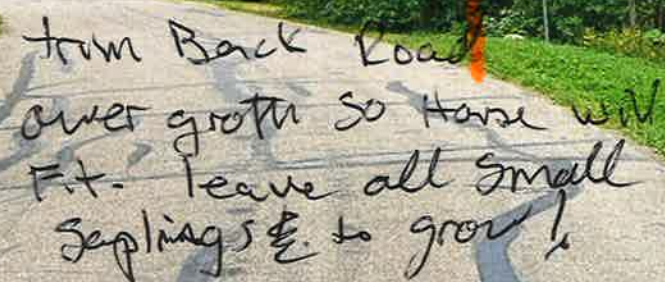 trim Back Road
over groth so House will
Fit. leave all small
Saplings & to grow!